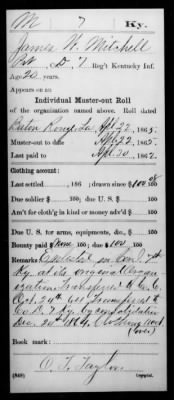 M 7 Ky.
James H. Mitchell
Pvt, Co. D, 7 Reg't Kentucky Inf.
Age 20 years.
Appears on an
Individual Muster-out Roll
of the organization named above. Roll dated
Baton Rouge, La, Apl 22, 1865.
Muster-out to date Apl 22, 1865.
Last paid to 30, 186
Clothing account:
Last settled , 186 ; drawn since $100
Due soldier $ 100; due U. S. $ 100
Am't for cloth'g in kind or money adv'd $ 100
Due U. S. for arms, equipments, &c., $ 100
Bounty paid $ 100; due $100 100
Remarks: Enlisted in Co. 7th
Ky. at the original organ
ization transferred to Co. C
Oct. 24th 64, transferred to
Co. D 7 Ky by consolidation
Dec. 24th 1864. Clothing acct
(over)
Book mark:
O. T. Taylor
(849) Copyist.